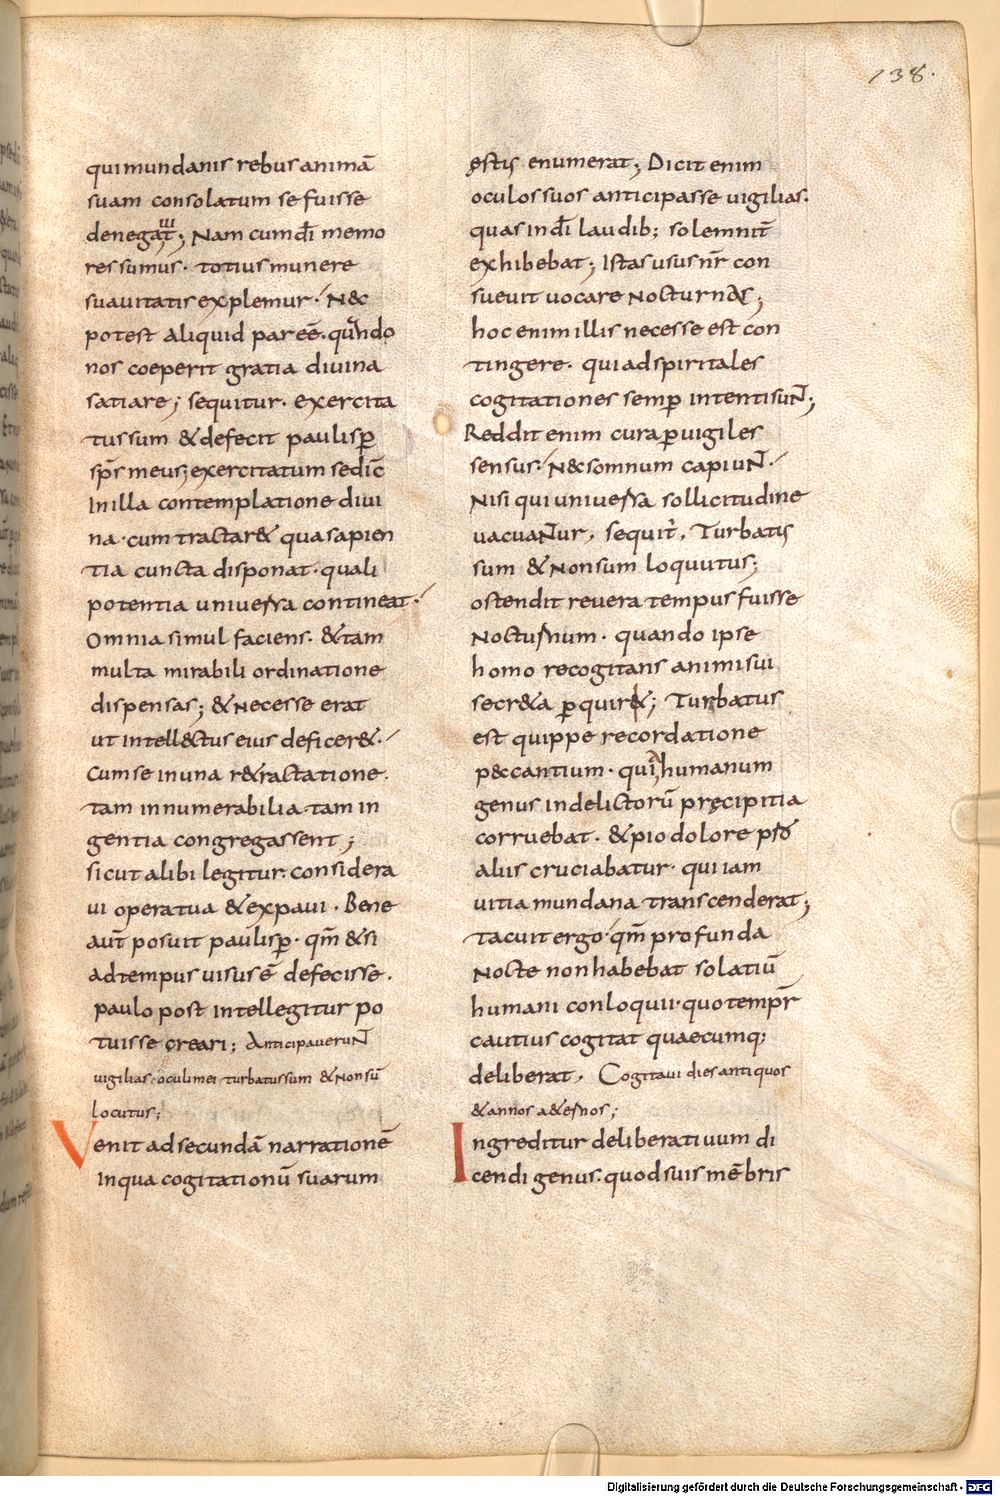 138.
qui mundanis rebus animā
suam consolatum se fuisse
denegat; Nam cum dī memo
res sumus· totius munere
suauitatis explemur· N&c
potest aliquid par eē· quando
nos coeperit gratia diuina
satiare; sequitur· exercita
tus sum & defecit paulisꝑ
sp̄s meus; exercitatum se dic̄
In illa contemplatione diui
na· cum tractar& qua sapien
tia cuncta disponat· quali
potentia uniuersa contineat·
Omnia simul faciens· & tam
multa mirabili ordinatione
dispensas; & Necesse erat
ut intell&ctus eius deficer&·
Cum se in una r&ractatione·
tam innumerabilia tam in
gentia congregassent;
sicut alibi legitur· considera
ui opera tua & expaui· Bene
aut̄ posuit paulisꝑ· qm̄ & si
ad tempus uisus ē defecisse·
paulo post intellegitur po
tuisse creari; Anticipauerunt
uigilias· oculi mei turbatus sum & Non sū
locutus;
Venit ad secundā narrationē
In qua cogitationū suarum
ęstis enumerat; Dicit enim
oculos suos anticipasse uigilias·
quas in dī laudib; solemnit̄
exhibebat; Istas usus nr̄ con
sueuit uocare Nocturnas;
hoc enim illis necesse est con
tingere· qui ad spiritales
cogitationes semꝑ intenti sunt;
Reddit enim cura ꝑuigiles
sensus· N&c somnum capiunt·
Nisi qui uniuersa sollicitudine
uacuantur, sequit̄, Turbatus
sum & Non sum loquutus;
ostendit reuera tempus fuisse
Nocturnum· quando ipse
homo recogitans animi sui
secr&a ꝑquir&; Turbatus
est quippe recordatione
p&cantium· quia humanum
genus in delictorū pręcipitia
corruebat· & pio dolore pro
aliis cruciabatur· qui iam
uitia mundana transcenderat;
tacuit ergo· qm̄ profunda
Nocte non habebat solatiū
humani conloquii· quo temp̄r
cautius cogitat quaecumq;
deliberat, Cogitaui dies antiquos
& annos a&ernos;
Ingreditur deliberatiuum di
cendi genus· quod suis mēbris
Digitalisierung gefördert durch die Deutsche Forschungsgemeinschaft - DFG